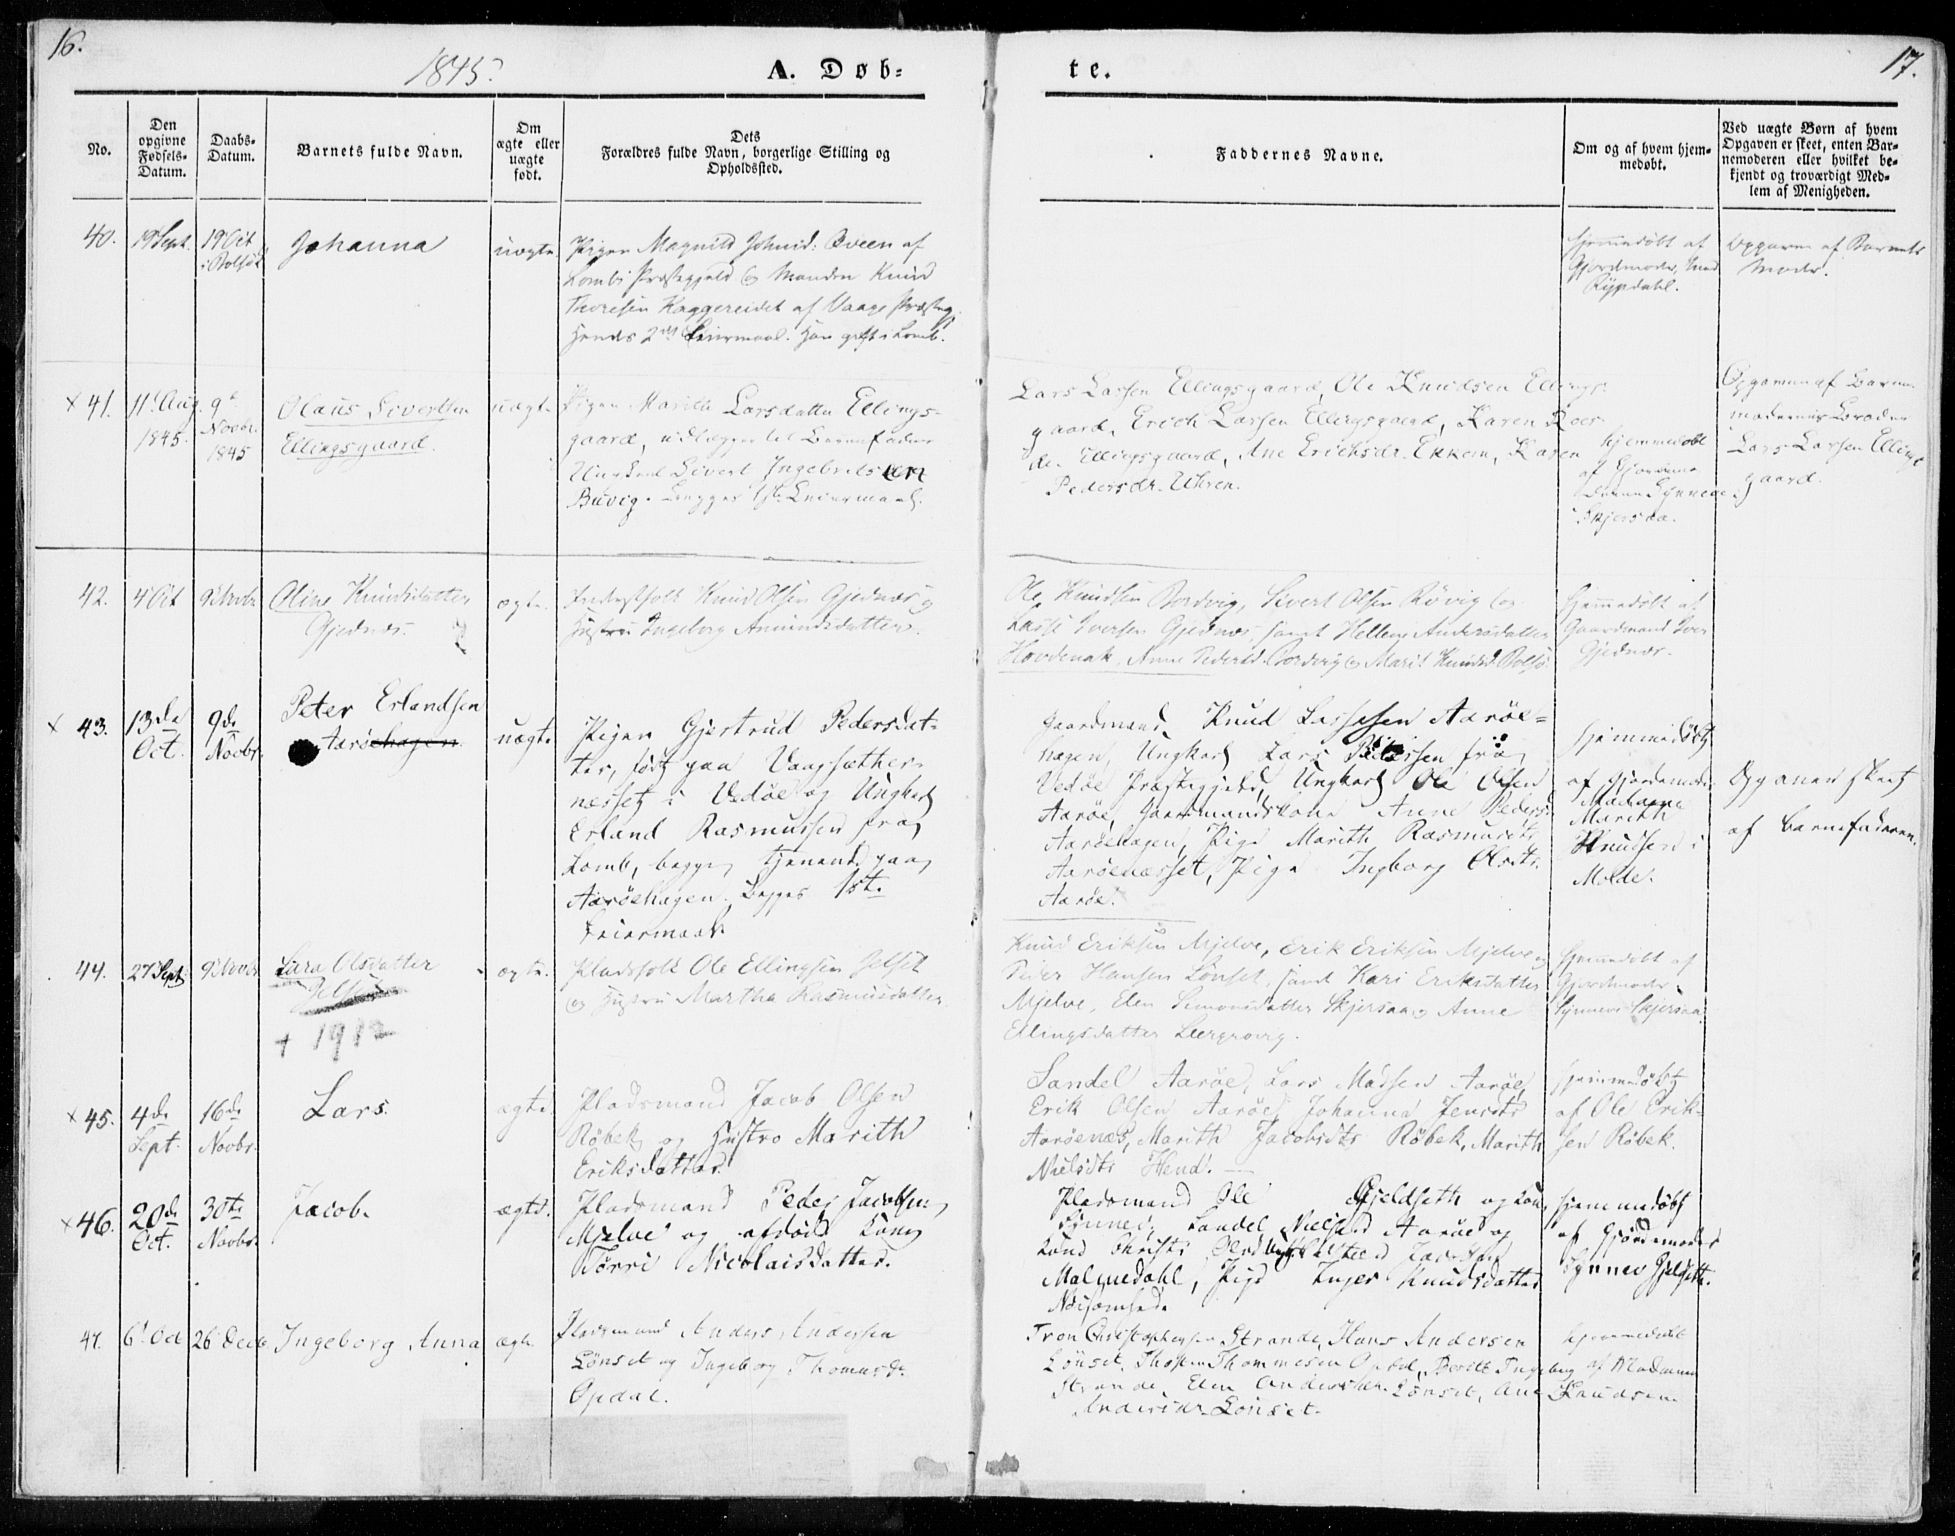 16.
1845.
A. Døb=
te.
17.
No.
Den opgivne Fødsels-Datum.
Daabs-Datum.
Barnets fulde Navn.
Om ægte eller uægte født.
Dets
Forældres fulde Navn, borgerlige Stilling og
Opholdssted.
Faddernes Navne.
Om og af hvem hjem-
medøbt.
Ved uægte Børn af hvem
Opgaven er skeet, enten Bar-
nemoderen eller hvilket be-
kjendt og troværdigt Med-
lem af Menigheden.
40.
19 Sept.
19 Oct
Johanna
uægte
Pigen Magnild
af
Lomb Præstegjeld og Manden Knud
Thoresen
af Vaage
Hendes 2det Leiermaal. Han gift i Lomb.
Hjemmedøbt af
Gjordmoder,
Rypdahl.
Opgaven af Barnets
Moder.
× 41.
11 Aug.
1845.
9de
Novbr.
1845
Olaus Sivertsen
Ellingsgaard.
uægte
Pigen Marith Larsdatter Ellings-
gaard, udlægger til Barnefader
Ungkarl Sivert Ingebrigtsen
Buvig. Begges 1ste Leiermaal.
Lars Larsen Ellingsgaard, Ole Knudsen Ellings-
gaard, Erich Larsen Ellingsgaard, Karen
Ellingsgaard, Ane Erichsdr. Ekkem, Karen
Pedersdr. Uhren.
hjemmedøbt
af Gjordemo-
deren Synneve
Skjersaa.
Opgaven af Barne-
moderens Broder
Lars Larsen Ellings-
gaard.
42.
4 Oct
9 Novbr
Oline Knudsdatter
Gjednæs.
ægte.
Knud Olsen Gjednæs og
Hustru Ingeborg Amundsdatter.
Ole Knudsen Bordvig, Sivert Olsen Røvig og
Lasse Iversen Gjednæs, samt Hellene Andersdatter
Hovdenak, Anne Pedersd. Bordvig og Marit Knudsd. Bolsø.
Hjemmedøbt af
Gaardmand Iver
Gjednæs.
× 43.
13de
Oct.
9de
Novbr.
Peter Erlandsen
Aarøehagen.
uægte
Pigen Gjertrud Pedersdat-
ter, født paa Vaagsæther-
næsset i Vedøe og Ungkarl
Erland Rasmussen fra
Lomb, begge tjenende paa
Aarøehagen. Begges 1ste
Leiermaal.
Gaardmand Knud Larssen Aarøe-
hagen, Ungkarl Lars Pedersen fra
Vedøe Præstegjeld, Ungkarl Ole Olsen
Aarøe, Gaardmandskone Anne Peders-
Aarøehagen, Pige Marith Rasmusdtr
Aarøenæsset, Pige Ingborg Olsdtr.
Aarøe.
Hjemmedøbt
af Gjordemoder
Madame
Marith
Knudsen i
Molde.
Opgaven skeet
af Barnefaderen.
44.
27 Sept
9 Novbr
Lara Olsdatter
Jelset
† 1912
ægte.
Pladsfolk Ole Ellingsen Jelset
og Hustru Martha Rasmusdatter
Knud Eriksen Mjelve, Erik Eriksen Mjelve og
Peder Hansen Lønset, samt Kari Eriksdatter
Mjelve, Elen Simonsdatter Skjersaa og Anne
Ellingsdatter Bergsvig.
Hjemmedøbt af
Gjordmoder
Synneve Skjersaa
× 45.
4de
Sept.
16de
Novbr.
Lars.
ægte.
Pladsmand Jacob Olsen
Røbek og Hustro Marith
Eriksdatter.
Sandel Aarøe, Lars Madsen Aarøe
Erik Olsen Aarøe, Johanna Jensdtr
Aarøenæs, Marith Jacobsdtr Røbek, Marith
Nielsdtr Hend.
Hjemmedøbt
af Ole Erik-
sen Røbek.
× 46.
20de
Oct.
30te
Novbr.
Jacob.
ægte.
Pladsmand Peder Jacobsen
Mjelve og afdøde Kone
Torri Nicolaisdatter.
Pladsmand Ole Gjeldseth og Kone
Synnev. Sandel Nielsen Aarøe og
Malmedahl, Pige Inger Knudsdatter
Nøisomhed.
Hjemmedøbt
af Gjordemoder
Synnev Gjelseth.
47.
6 Oct
26 Decb
Ingeborg Anna
ægte
Pladsmand Anders Andersen
Lønset og Ingeborg Thomasdr
Opdal.
Tron Christophersen Strande, Hans Andersen
Lønset, Thommesen Opdal, Beritt Ingeborg
Strande, Elen Andersdr. Lønset, Ane
Andersdr. Lønset.
hjemmedøbt
af Madame
Knudsen.